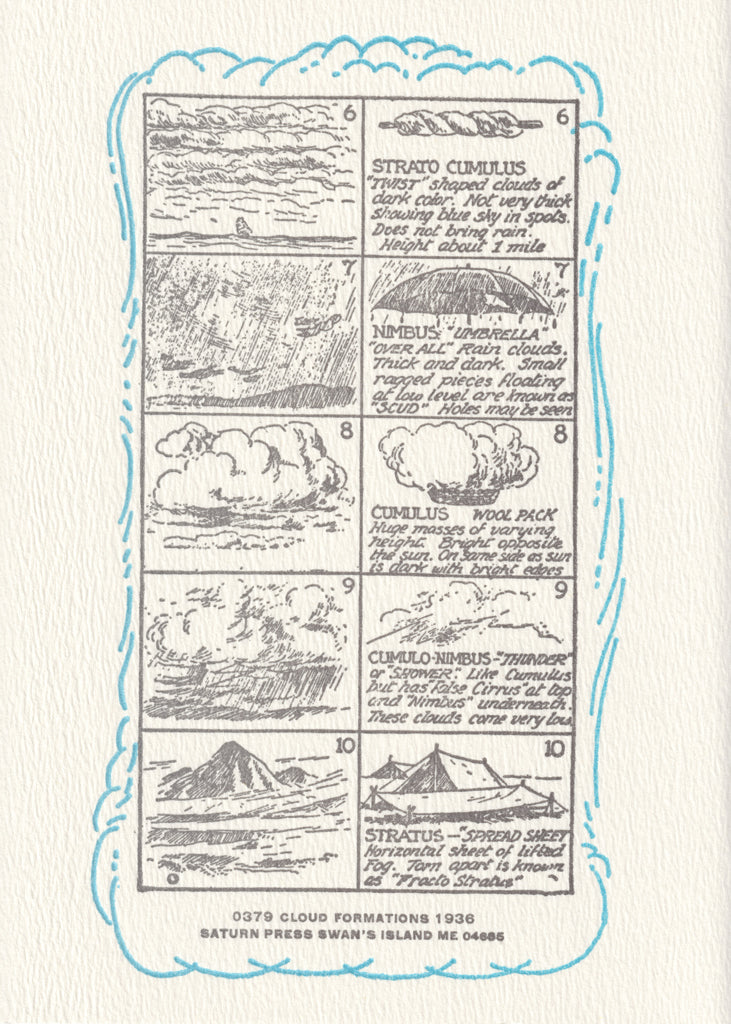 6
6
STRATO CUMULUS
"TWIST" shaped clouds of
dark color. Not very thick
showing blue sky in spots.
Does not bring rain.
Height about 1 mile
7
7
NIMBUS "UMBRELLA"
"OVER ALL" Rain clouds.
Thick and dark. Small
ragged pieces floating
at low level are known as
"SCUD" Holes may be seen
8
8
CUMULUS WOOL PACK
Huge masses of varying
height. Bright opposite
the sun. On same side as sun
is dark with bright edges
9
9
CUMULO-NIMBUS-"THUNDER"
or "SHOWER". Like Cumulus
but has "False Cirrus" at top
and "Nimbus" underneath.
These clouds come very low
10
10
STRATUS - "SPREAD SHEET
Horizontal sheet of lifted
Fog. Torn apart is known
as "Fracto Stratus"
0379 CLOUD FORMATIONS 1936
SATURN PRESS SWAN'S ISLAND ME 04685